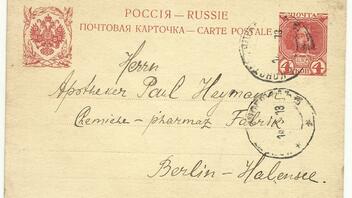 РОССІЯ – RUSSIE
ПОЧТОВАЯ КАРТОЧКА – CARTE POSTALE
ПОЧТА
4 КОП 4
Herrn
Apotheker Paul Heyman
Chemische - pharmaz Fabrik
Berlin - Halensee.